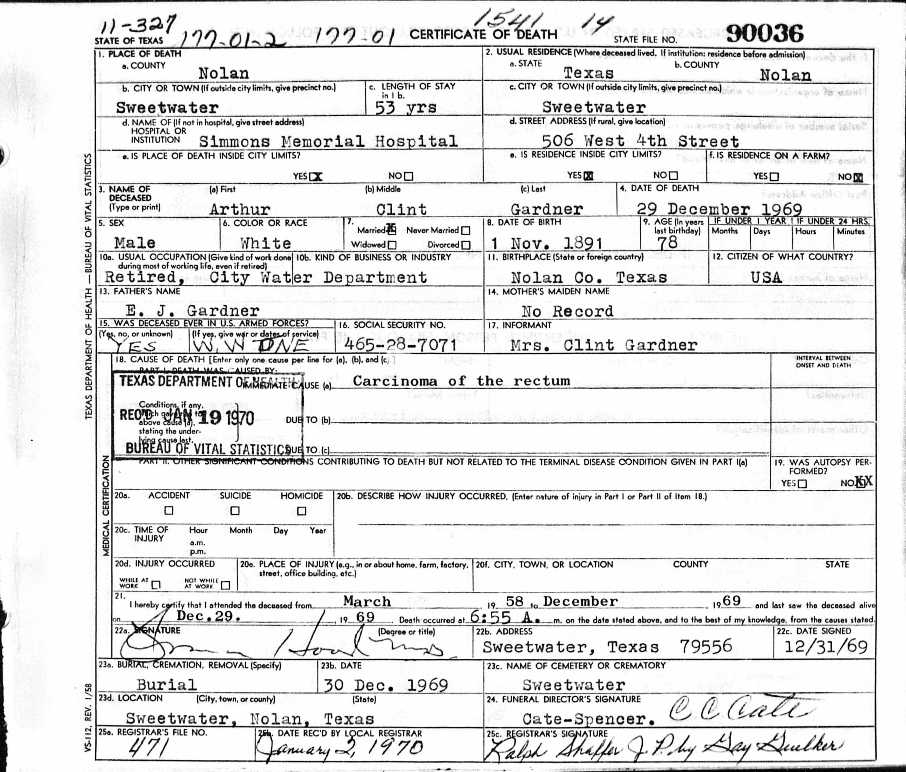 11-327 1541 14
STATE OF TEXAS 177-01-2 177-01 CERTIFICATE OF DEATH STATE FILE NO. 90036
1. PLACE OF DEATH
a. COUNTY
Nolan
2. USUAL RESIDENCE (Where deceased lived. If institution: residence before admission)
a. STATE b. COUNTY
Texas Nolan
b. CITY OR TOWN (If outside city limits, give precinct no.)
Sweetwater
c. LENGTH OF STAY
in 1 b.
53 yrs
c. CITY OR TOWN (If outside city limits, give precinct no.)
Sweetwater
d. NAME OF (If not in hospital, give street address)
HOSPITAL OR
INSTITUTION Simmons Memorial Hospital
d. STREET ADDRESS (If rural, give location)
506 West 4th Street
e. IS PLACE OF DEATH INSIDE CITY LIMITS?
YES X NO
e. IS RESIDENCE INSIDE CITY LIMITS?
YES X NO
f. IS RESIDENCE ON A FARM?
YES NO X
3. NAME OF
DECEASED
(Type or print)
(a) First (b) Middle (c) Last
Arthur Clint Gardner
4. DATE OF DEATH
29 December 1969
5. SEX
Male
6. COLOR OR RACE
White
7.
Married X Never Married
Widowed Divorced
8. DATE OF BIRTH
1 Nov. 1891
9. AGE (In years
last birthday)
78
IF UNDER 1 YEAR IF UNDER 24 HRS.
Months Days Hours Minutes
10a. USUAL OCCUPATION (Give kind of work done 10b. KIND OF BUSINESS OR INDUSTRY
during most of working life, even if retired)
Retired, City Water Department
11. BIRTHPLACE (State or foreign country)
Nolan Co. Texas
12. CITIZEN OF WHAT COUNTRY?
USA
13. FATHER'S NAME
E. J. Gardner
14. MOTHER'S MAIDEN NAME
No Record
15. WAS DECEASED EVER IN U.S. ARMED FORCES?
(Yes, no, or unknown) (If yes, give war or dates of service)
YES W.W ONE
16. SOCIAL SECURITY NO.
465-28-7071
17. INFORMANT
Mrs. Clint Gardner
18. CAUSE OF DEATH [Enter only one cause per line for (a), (b), and (c)
INTERVAL BETWEEN
ONSET AND DEATH
PART I. DEATH WAS CAUSED BY:
IMMEDIATE CAUSE (a) Carcinoma of the rectum
TEXAS DEPARTMENT OF HEALTH
REC'D JAN 19 1970
BUREAU OF VITAL STATISTICS
Conditions, if any,
which gave rise to
above cause (a),
stating the under-
lying cause last.
DUE TO (b)
DUE TO (c)
PART II. OTHER SIGNIFICANT CONDITIONS CONTRIBUTING TO DEATH BUT NOT RELATED TO THE TERMINAL DISEASE CONDITION GIVEN IN PART I(a)
19. WAS AUTOPSY PER-
FORMED?
YES NO XX
20a. ACCIDENT SUICIDE HOMICIDE
20b. DESCRIBE HOW INJURY OCCURRED. (Enter nature of injury in Part I or Part II of item 18.)
20c. TIME OF
INJURY
Hour Month Day Year
a.m.
p.m.
20d. INJURY OCCURRED
WHILE AT
WORK
NOT WHILE
AT WORK
20e. PLACE OF INJURY (e.g., in or about home, farm, factory,
street, office building, etc.)
20f. CITY, TOWN, OR LOCATION COUNTY STATE
21.
I hereby certify that I attended the deceased from March 19 58 to December 19 69 and last saw the deceased alive
on Dec.29. 19 69. Death occurred at 6:55 A. m. on the date stated above, and to the best of my knowledge, from the causes stated.
22a. SIGNATURE (Degree or title)
22b. ADDRESS
Sweetwater, Texas 79556
22c. DATE SIGNED
12/31/69
23a. BURIAL, CREMATION, REMOVAL (Specify)
Burial
23b. DATE
30 Dec. 1969
23c. NAME OF CEMETERY OR CREMATORY
Sweetwater
23d. LOCATION (City, town, or county) (State)
Sweetwater, Nolan, Texas
24. FUNERAL DIRECTOR'S SIGNATURE
Cate-Spencer. C C Cate
25a. REGISTRAR'S FILE NO.
471
25b. DATE REC'D BY LOCAL REGISTRAR
January 2, 1970
25c. REGISTRAR'S SIGNATURE
Ralph Shaffer J.P. by Gay Gwulker
TEXAS DEPARTMENT OF HEALTH — BUREAU OF VITAL STATISTICS
MEDICAL CERTIFICATION
VS-112, REV. 1/58